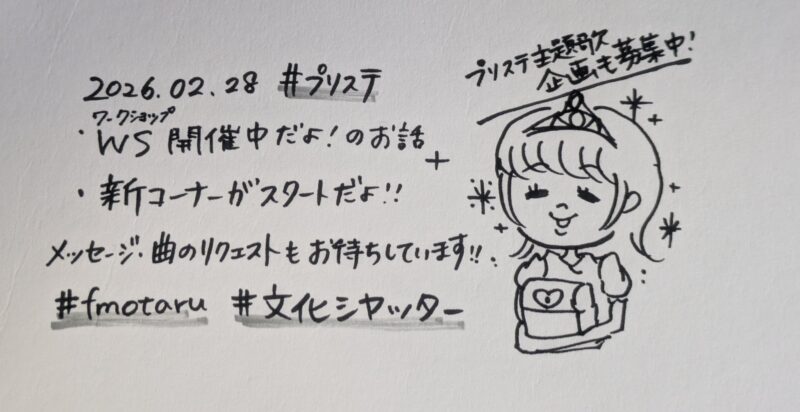 2026.02.28 #プリステ
ワークショップ
・WS 開催中だよ!のお話
・新コーナーがスタートだよ!!
メッセージ・曲のリクエストもお待ちしています!!
#fmotaru #文化シヤッター
プリステ主題歌
企画も募集中!